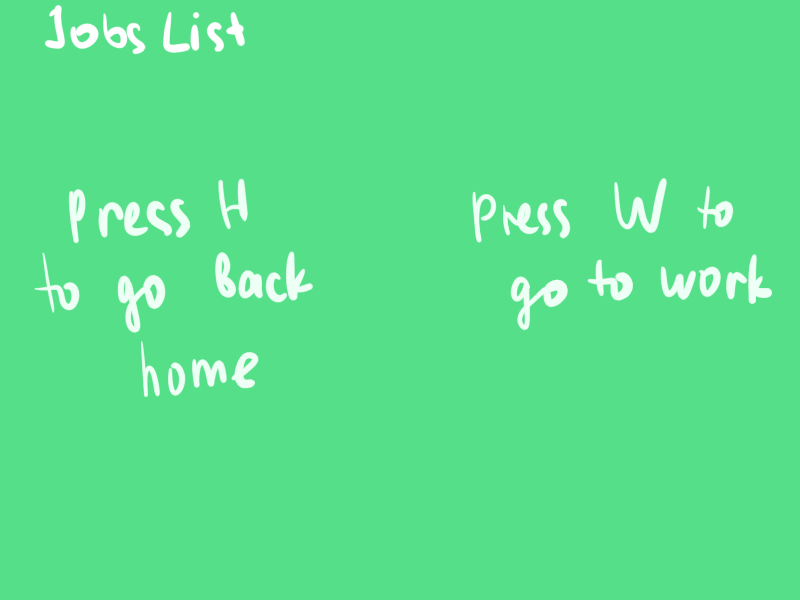 Jobs List
Press H
to go Back
home
Press W to
go to work